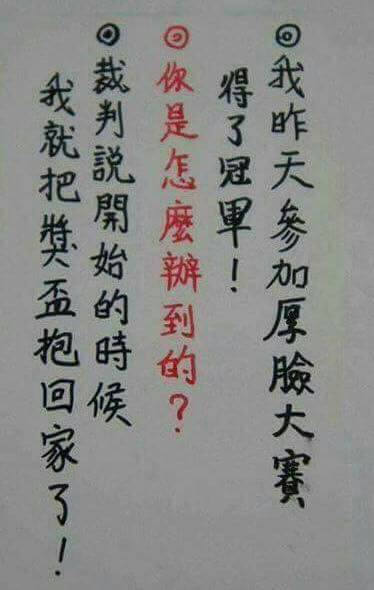 ◎我昨天參加厚臉大賽
得了冠軍！
◎你是怎麼辦到的？
◎裁判說開始的時候
我就把獎盃抱回家了！